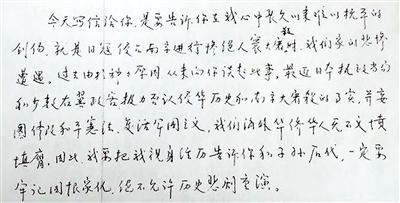 今天写信给你，是要告诉你在我心中长久以来难以抚平的
创伤，就是日寇侵占南京进行惨绝人寰大屠杀时，我们家的悲惨
遭遇。过去由于种种原因从来向你谈起此事。最近日本执政当局
和少数右翼政客极力否认侵华历史和南京大屠杀的事实，并妄
图修改和平宪法，复活军国主义，我们海外华侨华人无不义愤
填膺。因此，我要把我亲身经历告诉你和子孙后代，一定要
牢记国恨家仇，绝不允许历史悲剧重演。